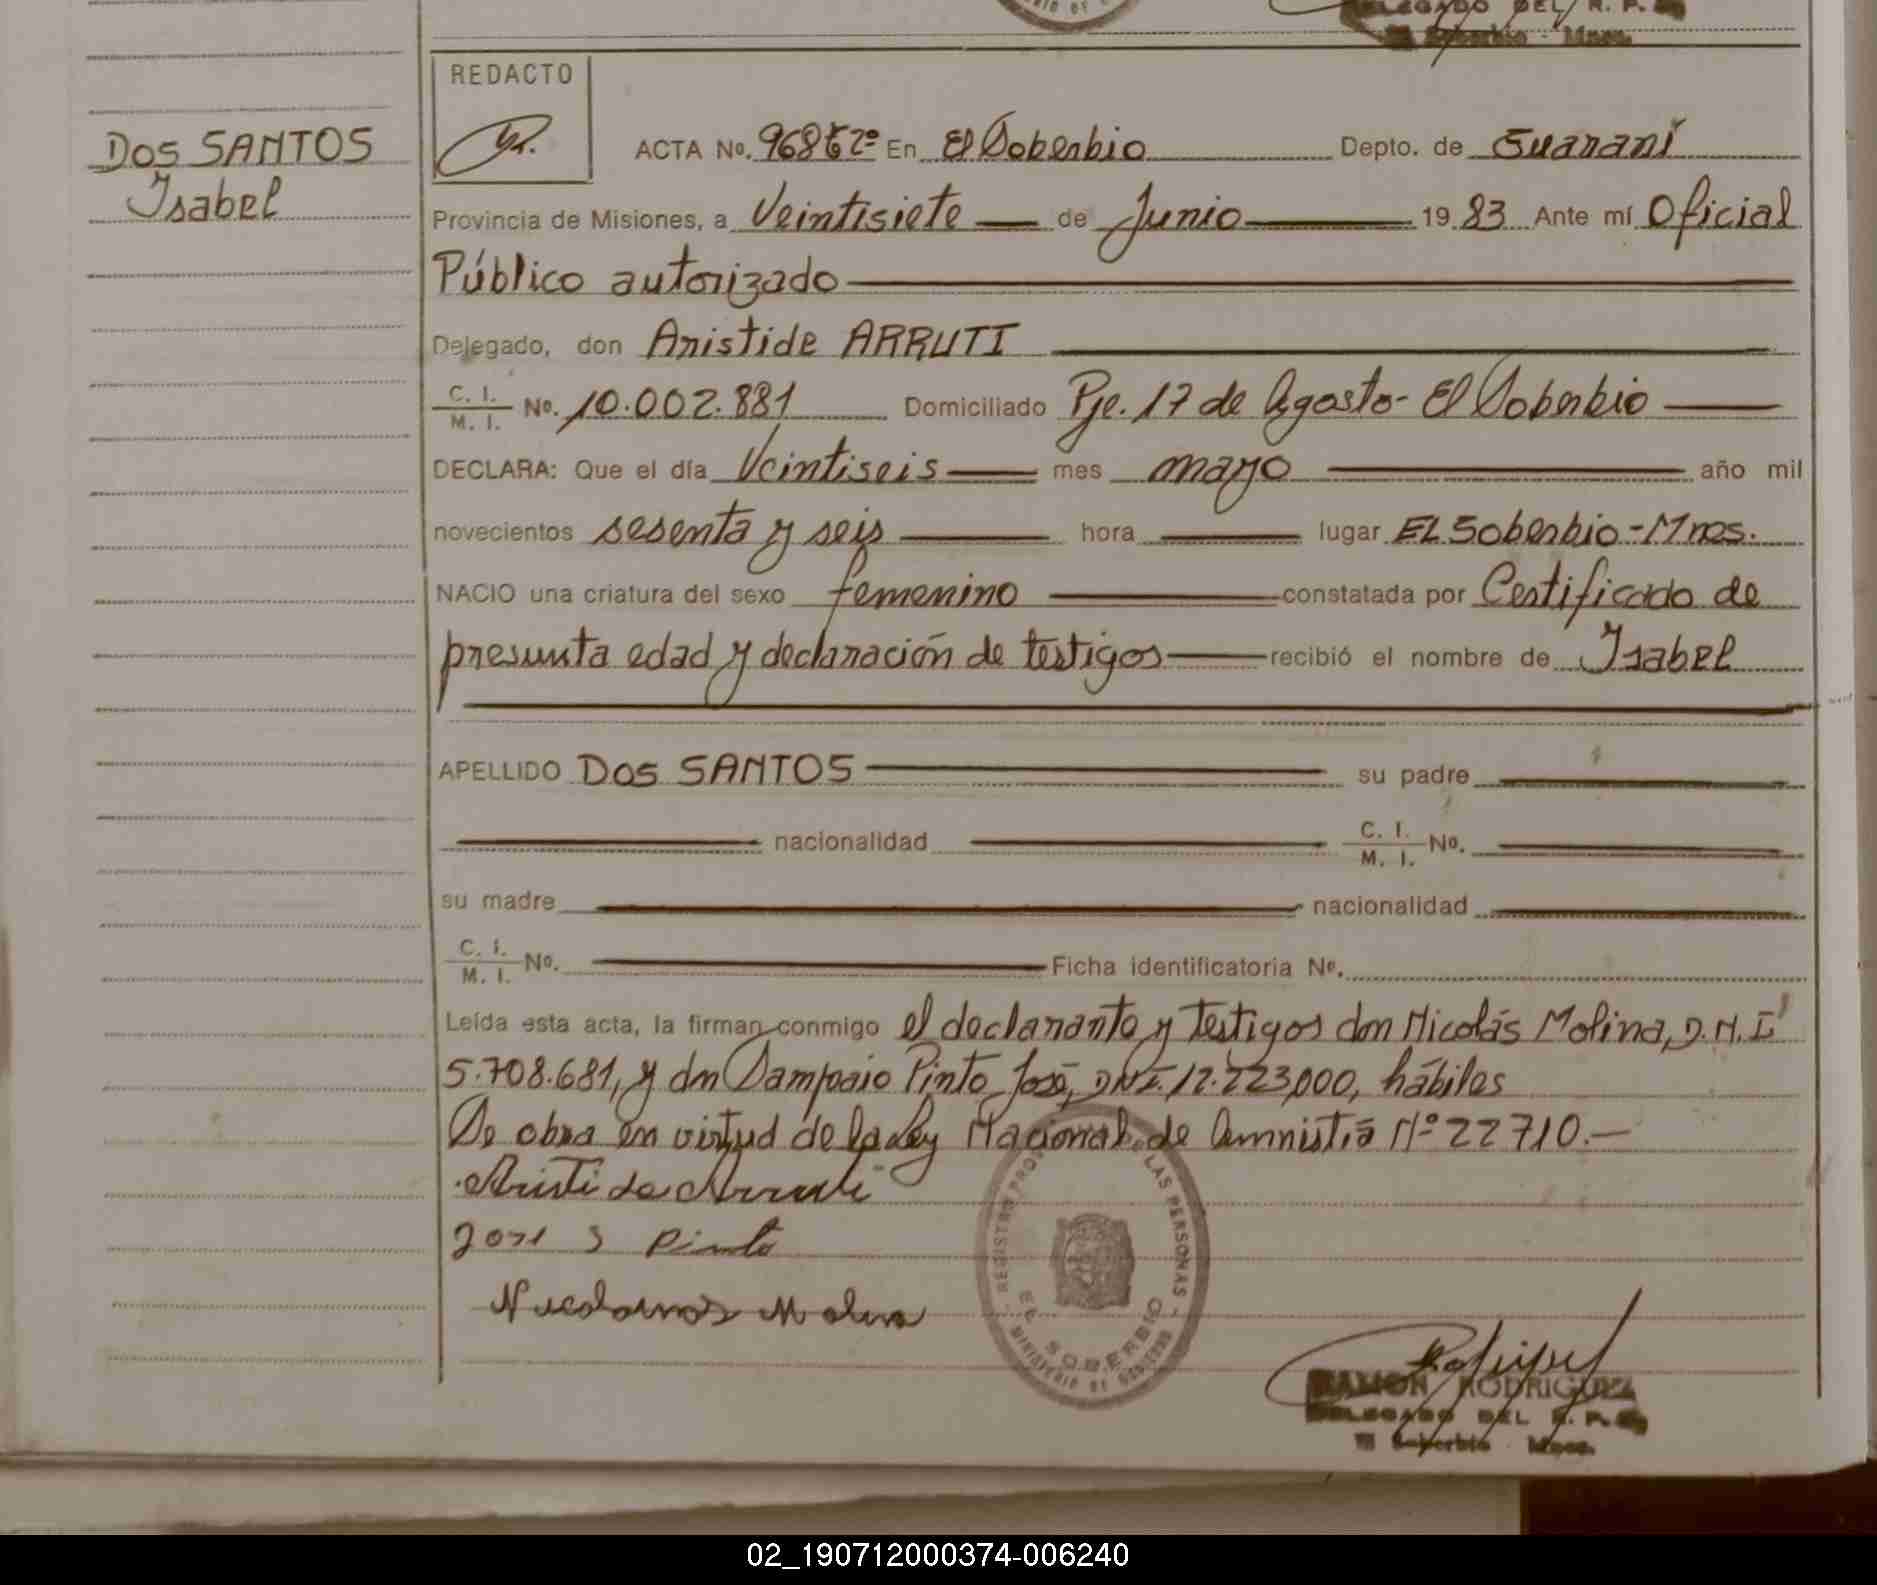 DELEGADO DEL R. P.
El Soberbio - Mnes.
REDACTO
DOS SANTOS
Isabel
ACTA No. 968 Tº 2º En El Soberbio Depto. de Guaraní
Provincia de Misiones, a Veintisiete de Junio 19 83 Ante mí Oficial
Público autorizado
Delegado, don Aristide ARRUTI
C. I.
M. I. No. 10.002.881 Domiciliado Pje. 17 de Agosto - El Soberbio
DECLARA: Que el día Veintiseis mes mayo año mil
novecientos sesenta y seis hora lugar EL Soberbio - Mnes.
NACIO una criatura del sexo femenino constatada por Certificado de
presunta edad y declaración de testigos recibió el nombre de Isabel
APELLIDO DOS SANTOS su padre
nacionalidad C. I.
M. I. No.
su madre nacionalidad
C. I.
M. I. No. Ficha identificatoria No.
Leída esta acta, la firman conmigo el declarante y testigos don Nicolás Molina, D.N.I
5.708.681, y dn Sampaio Pinto José, DNI. 12.223,000, hábiles
Se obra en virtud de la Ley Nacional de Amnistía Nº 22710.-
Aristide Arruti
José S Pinto
Molina
REGISTRO LAS PERSONAS
EL SOBERBIO
MINISTERIO DE GOBIERNO
RAMON RODRIGUEZ
DELEGADO DEL R. P.
El Soberbio Mnes.
02_190712000374-006240